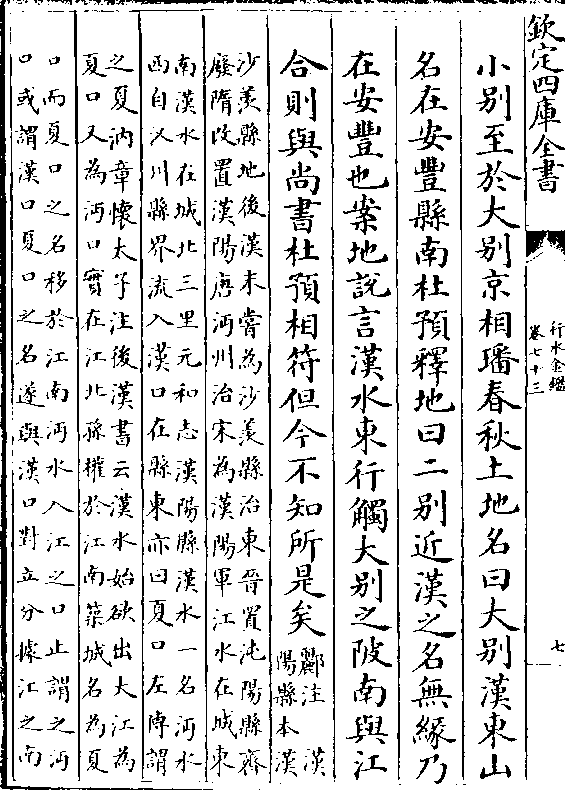 欽定四庫全書
行水金鑑
卷七十三
七
小别至於大别京相璠春秋土地名曰大别漢東山
名在安豐縣南杜預釋地曰二别近漢之名無緣乃
在安豐也案地說言漢水東行觸大别之陂南與江
合則與尚書杜預相符但今不知所是矣
酈注漢
陽縣本漢
沙羡縣地後漢末嘗為沙羡縣治東晉置沌陽縣齊
廢隋改置漢陽唐沔州治宋為漢陽軍江水在城東
南漢水在城北三里元和志漢陽縣漢水一名沔水
西自汊川縣界流入漢口在縣東亦曰夏口左傳謂
之夏汭章懷太子注後漢書云漢水始欲出大江為
夏口又為沔口實在江北孫權於江南築城名為夏
口而夏口之名移於江南沔水入江之口止謂之沔
口或謂漢口夏口之名遂與漢口對立分據江之南